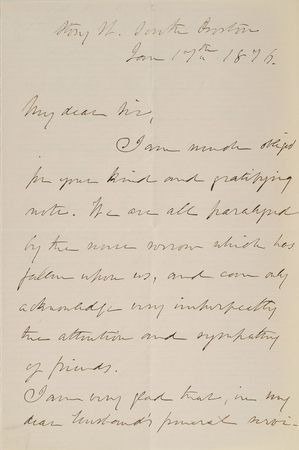 Story St. South Boston
Jan 17th 1876.
My dear Sir,
I am much obliged
for your kind and gratifying
note. We are all paralyzed
by the sorrow which has
fallen upon us, and can only
acknowledge very imperfectly
the attention and sympathy
of friends.
I am very glad that, in my
dear husband's funeral servi-